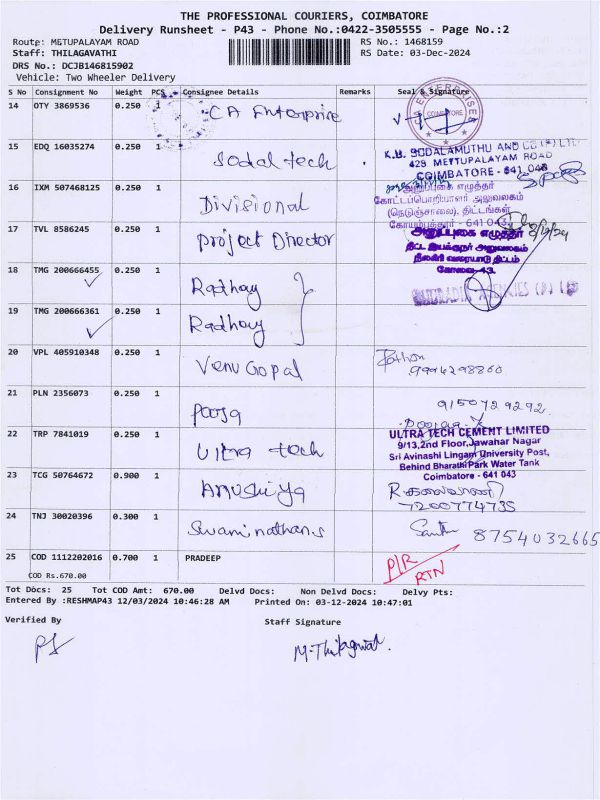 THE PROFESSIONAL COURIERS, COIMBATORE
Delivery Runsheet - P43 - Phone No.:0422-3505555 - Page No.:2
Route: METUPALAYAM ROAD
RS No.: 1468159
Staff: THILAGAVATHI
RS Date: 03-Dec-2024
DRS No.: DCJB146815902
Vehicle: Two Wheeler Delivery
S No Consignment No Weight PCS Consignee Details Remarks Seal & Signature
14 OTY 3869536 0.250 1 CA Enterprise
CA ENTERPRISES
COIMBATORE
15 EDQ 16035274 0.250 1 Sodal tech
K.B. SODALAMUTHU AND CO (P) LTD
429, METTUPALAYAM ROAD
COIMBATORE - 641 043
16 IXM 507468125 0.250 1 Divisional
அனுப்புகை எழுத்தர்
கோட்டப்பொறியாளர் அலுவலகம்
(நெடுஞ்சாலை), திட்டங்கள்
17 TVL 8586245 0.250 1 project Director
அனுப்புகை எழுத்தர்
திட்ட இயக்குநர் அலுவலகம்
நீலகிரி வரையாடு திட்டம்
கோவை-43.
18 TMG 200666455 0.250 1 Radhay
19 TMG 200666361 0.250 1 Radhay
20 VPL 405910348 0.250 1 Venu Gopal
9994298860
21 PLN 2356073 0.250 1 Pooja
9150729292
22 TRP 7841019 0.250 1 Ultra tech
ULTRA TECH CEMENT LIMITED
9/13,2nd Floor,Jawahar Nagar
Sri Avinashi Lingam University Post,
Behind Bharathi Park Water Tank
Coimbatore - 641 043
23 TCG 50764672 0.900 1 Anushiya
R. கலைவாணி
7200774735
24 TNJ 30020396 0.300 1 Swaminathan.s
8754032665
25 COD 1112202016 0.700 1 PRADEEP
P/R
RTN
COD Rs.670.00
Tot Docs: 25 Tot COD Amt: 670.00 Delvd Docs: Non Delvd Docs: Delvy Pts:
Entered By :RESHMAP43 12/03/2024 10:46:28 AM Printed On: 03-12-2024 10:47:01
Verified By
Staff Signature